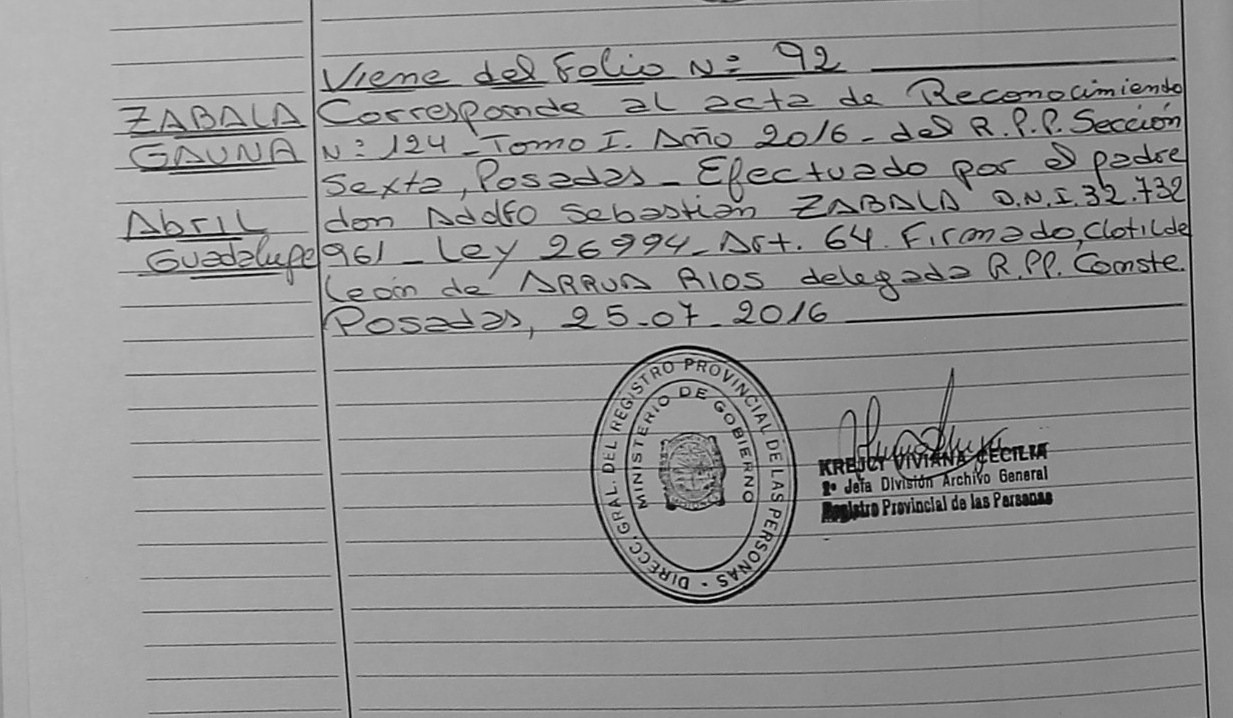 Viene del Folio N° 92
ZABALA
GAUNA
Abril
Guadalupe
Corresponde al acta de Reconocimiento
N° 124 - Tomo I. Año 2016 - del R.P.P. Sección
Sexta, Posadas - Efectuado por el padre
don Adolfo Sebastian ZABALA D.N.I. 32.732
961 - Ley 26994 - Art. 64. Firmado, Clotilde
Leon de ARRUA RIOS delegada R.PP. Conste.
Posadas, 25-07-2016
DIRECC. GRAL. DEL REGISTRO PROVINCIAL DE LAS PERSONAS -
MINISTERIO DE GOBIERNO
KREJCY VIVIANA CECILIA
2º Jefa División Archivo General
Registro Provincial de las Personas